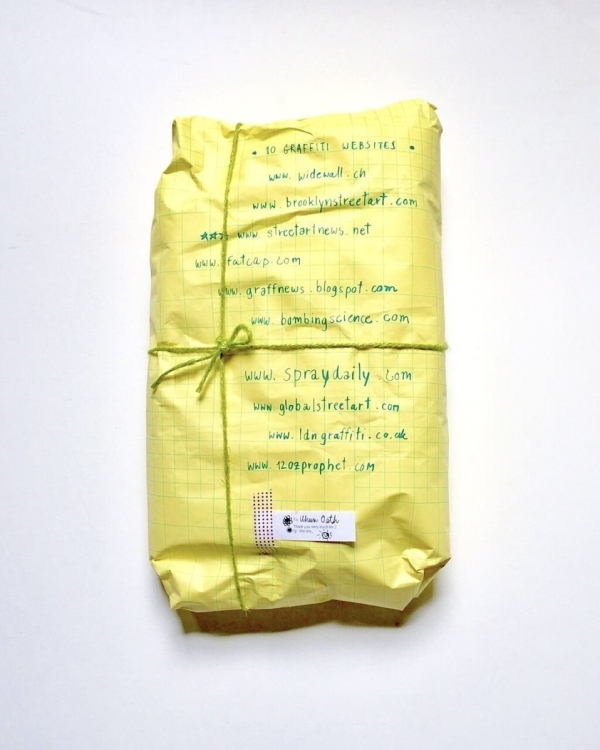 • 10 GRAFFITI WEBSITES •
www. widewall. ch
www. brooklynstreetart. com
www. streetartnews. net
www. fatcap. com
www. graffnews. blogspot. com
www. bombingscience. com
www. spraydaily. com
www. globalstreetart. com
www. ldngraffiti. co. uk
www. 12ozprophet. com
Thank you very much for